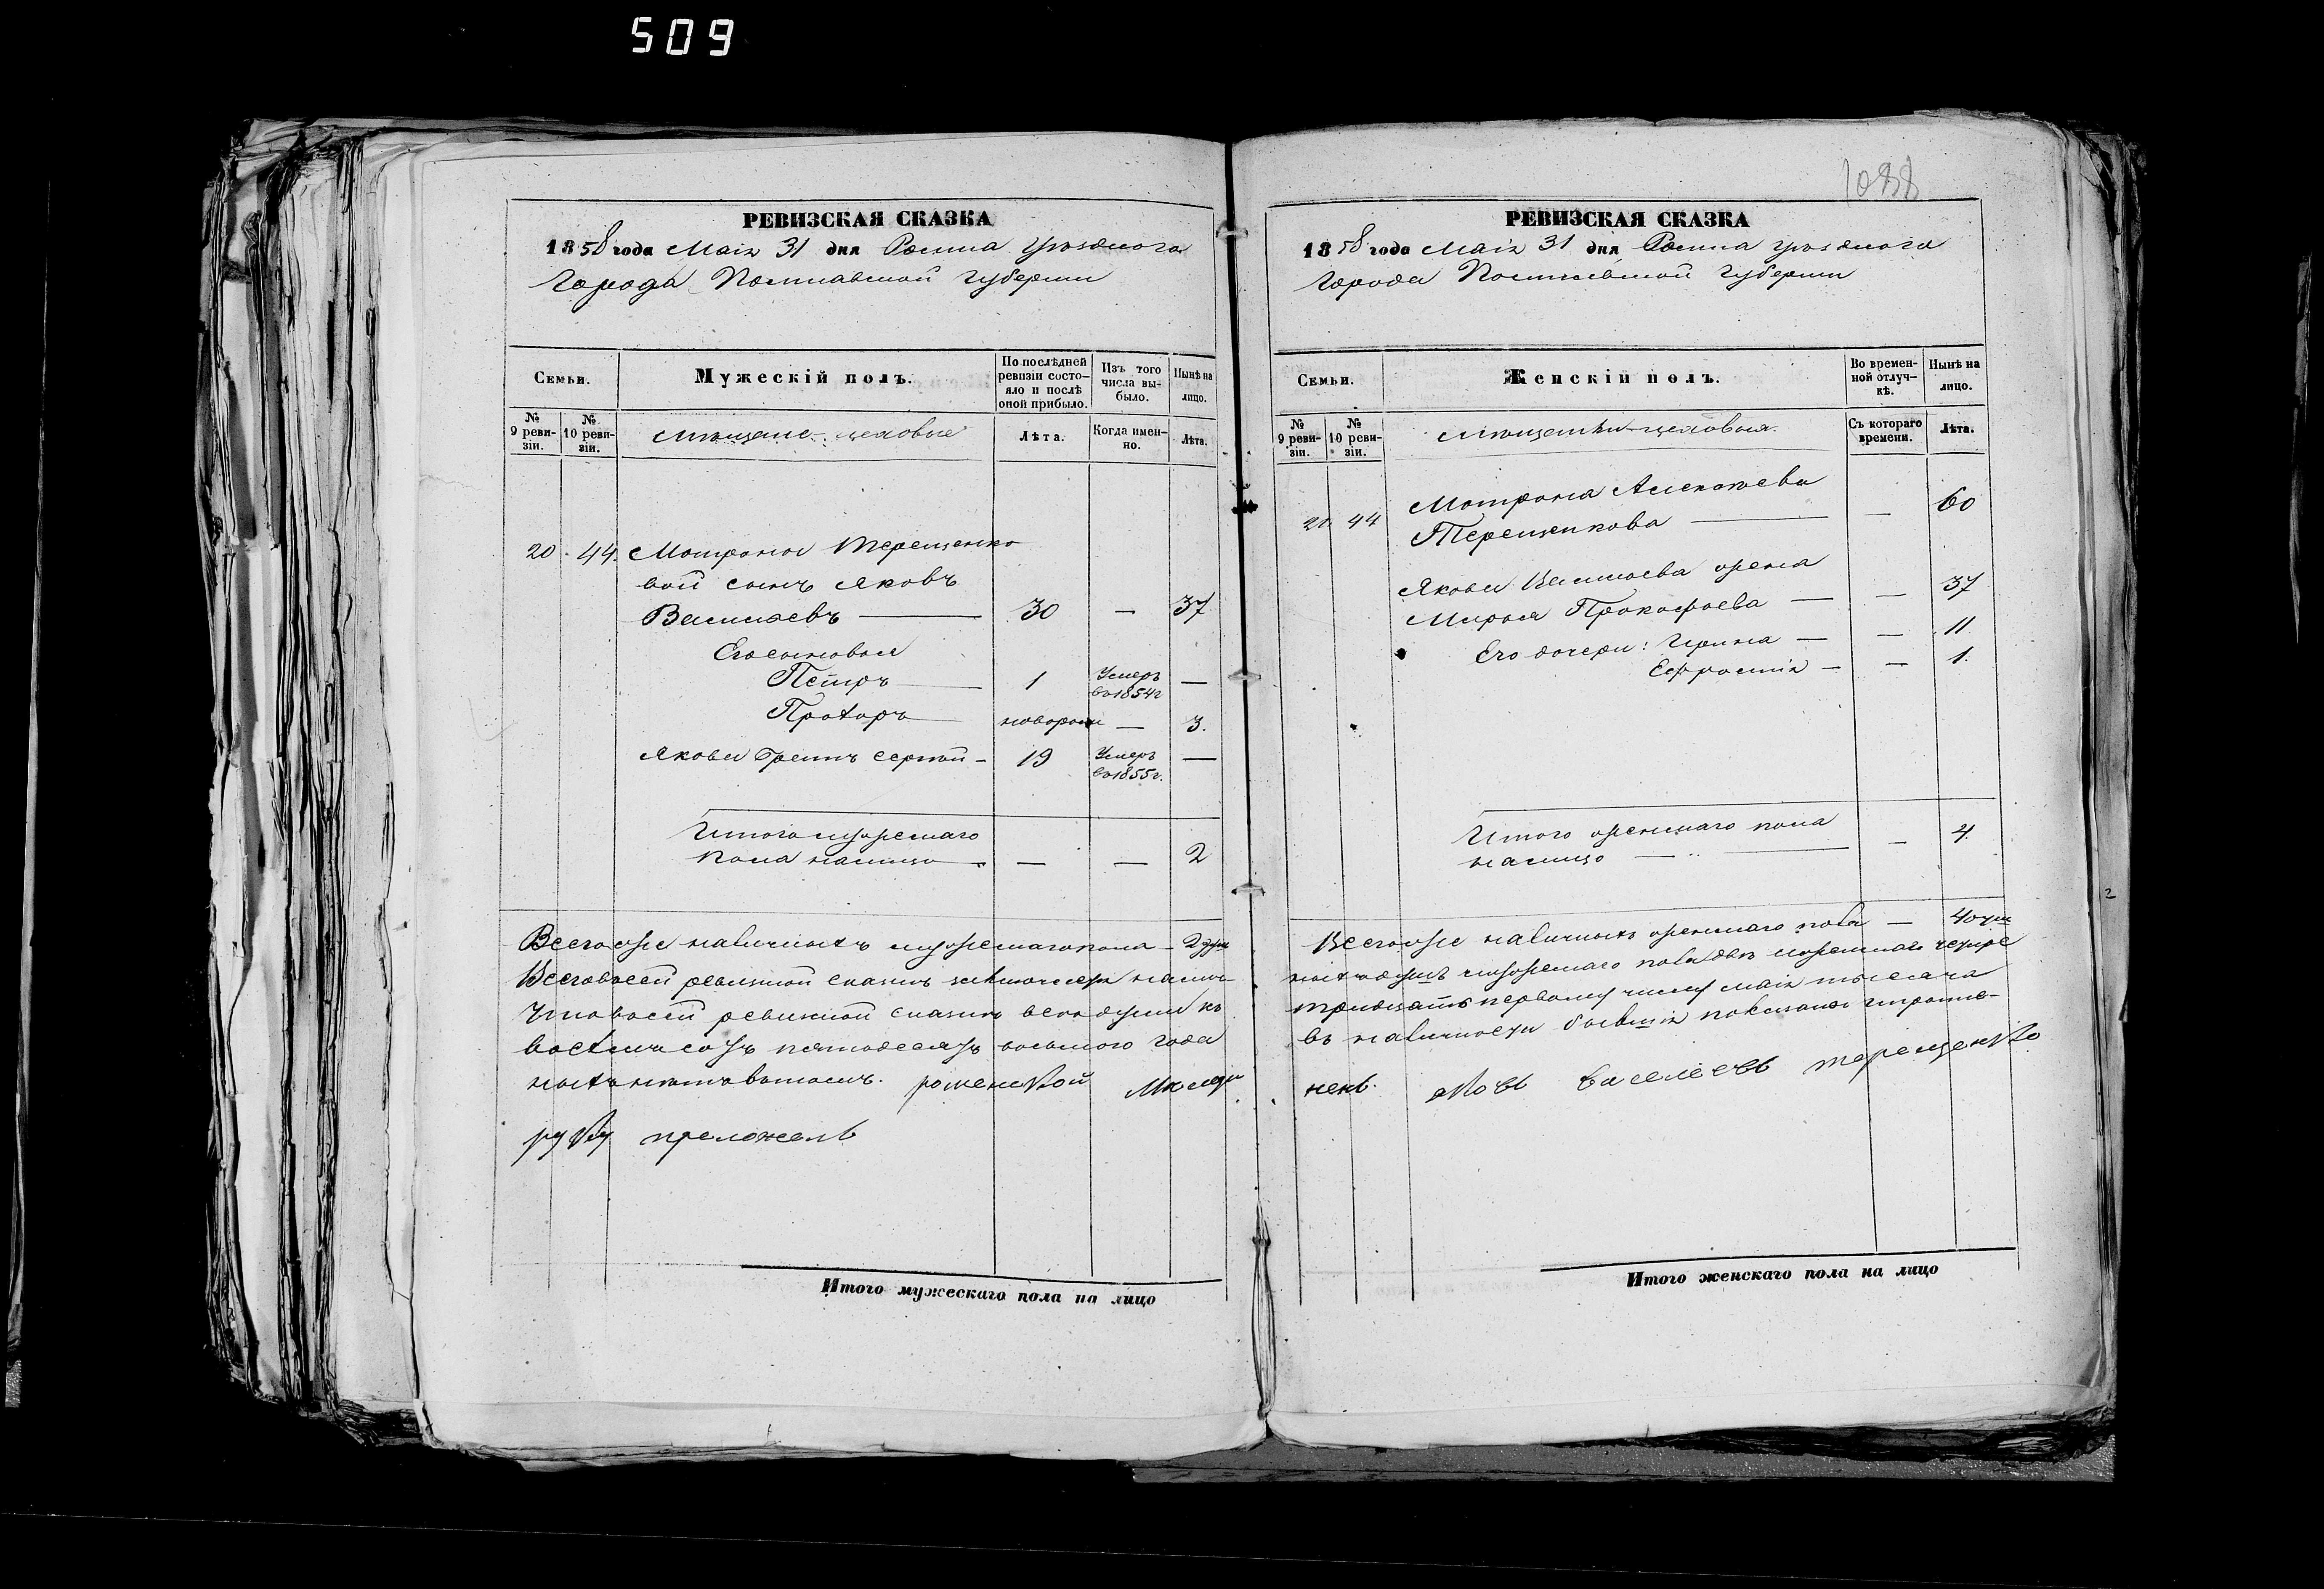 509
1088
РЕВИЗСКАЯ СКАЗКА
1858 года Маія 31 дня Ромна уѣзднога
города Полтавской губерніи
Семьи.
Мужескій полъ.
По послѣдней ревизіи состо-
яло и послѣ
оной прибыло.
Изъ того
числа вы-
было.
Нынѣ на
лицо.
№
9 реви-
зіи.
№
10 реви-
зіи.
мѣщане-цеховые
Лѣта.
Когда имен-
но.
Лѣта.
20 44. Матроны Терещенко
вой сынъ Яковъ
Васильевъ — 30 — 37
Его сыновья
Петръ — 1 Умеръ
въ 1854г —
Прохоръ — новорож — 3.
Якова братъ Сергѣй — 19 Умеръ
въ 1855г. —
Итого мужескаго
пола налицо — — — 2
Всего же наличныхъ мужескаго пола — 2 душ
Всего въ сей ревизкой сказкѣ
Что въ сей ревизкой сказкѣ все души къ
восемь сотъ пятьдесятъ восьмого года
роменской Мѣщан
руку преложелъ
Итого мужескаго пола на лицо
РЕВИЗСКАЯ СКАЗКА
1858 года Маія 31 дня Ромна уѣзднога
города Полтавской губерніи
Семьи.
Женскій полъ.
Во времен-
ной отлуч-
кѣ.
Нынѣ на
лицо.
№
9 реви-
зіи.
№
10 реви-
зіи.
мѣщанки-цеховыя.
Съ котораго
времени.
Лѣта.
20 44 Матрона Алексѣева
Терещенкова — — 60
Якова Васильева жена
Марья Прокофьева — — 37
Его дочери: Ирина — — 11
Ефросинія — — 1.
Итого женскаго пола
налицо — — 4
Всего же наличныхъ женскаго пола — 4 душ
душъ мужескаго пола двѣ и женскаго четыре
тридцать первому числу маія тысяча
въ наличности бывшія показаны и
яковъ васелевъ терещенко
Итого женскаго пола на лицо